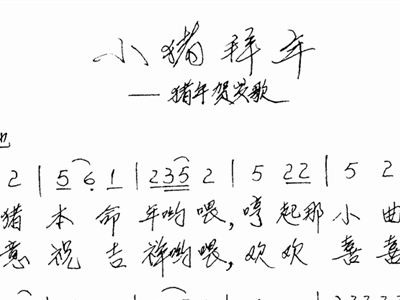 小猪拜年
——猪年贺岁歌
2 | 5 6 1 | 2 3 5 2 | 5 2 2 | 5 2
猪本命年哟喂,哼起那小曲
意祝吉祥哟喂,欢欢喜喜